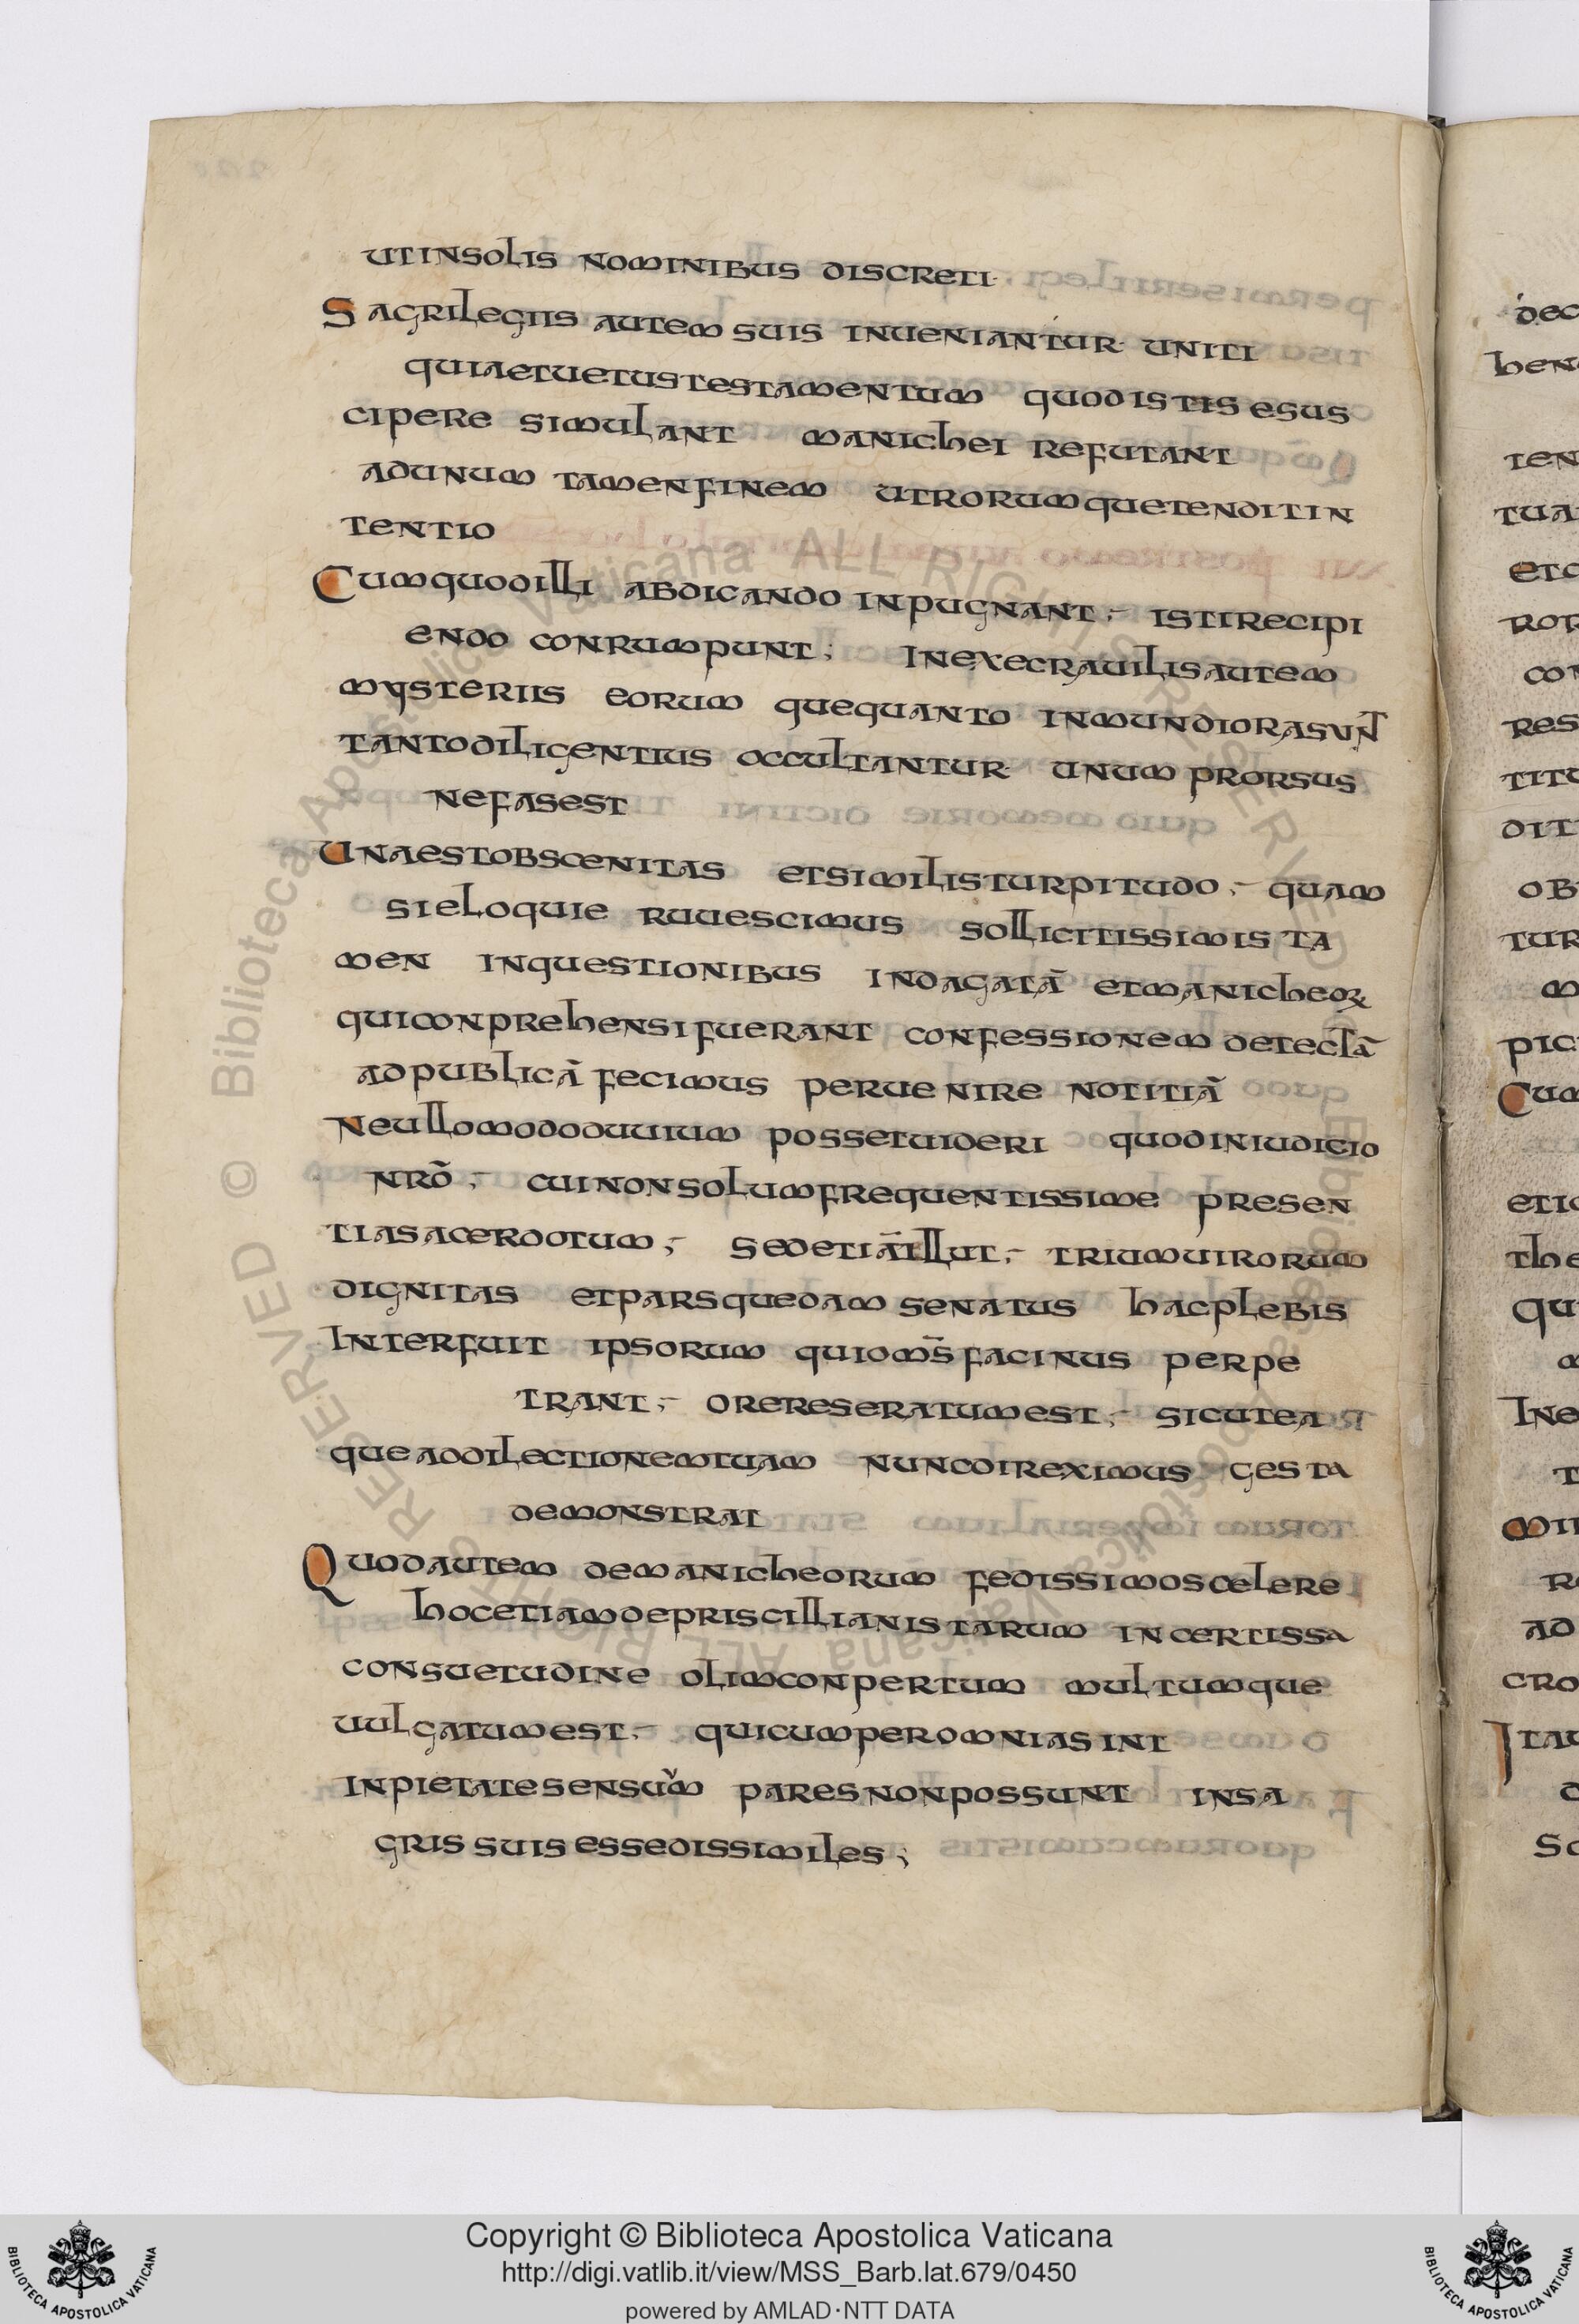 ut in solis nominibus discreti·
Sagrilegiis autem suis inueniantur· uniti
quia et uetus testamentum quod istis esus
cipere simulant manichei refutant
ad unum tamen finem utrorumque tendit in
tentio
Cum quod illi abdicando inpugnant;– isti recipi
endo conrumpunt; In execrauilis autem
mysteriis eorum que quanto inmundiora sunt
tanto diligentius occultantur· unum prorsus
nefas est
Una est obscenitas et similis turpitudo;– quam
si eloqui eruuescimus sollicitissimis ta
men inquestionibus indagatā et manicheoꝝ
qui conprehensi fuerant confessionem detectā
ad publicā fecimus peruenire notitiā
Ne ullo modo duuium posset uideri quod in iudicio
nrō;– cui non solum frequentissime presen
tia sacerdotum;– sed etiā illut;– trium uirorum
dignitas et pars quedam senatus hac plebis
Interfuit ipsorum qui om̄s facinus perpe
trant;– ore reseratum est;– sicut ea
que ad dilectionem tuam nunc direximus gesta
demonstrat
Quod autem de manicheorum fedissimo scelere
hoc etiam de priscillianistarum incertissa
consuetudine olim conpertum multumque
uulgatum est;– qui cum per omnia sint
inpietate sensuum pares non possunt insa
gris suis esse dissimiles;
Copyright © Biblioteca Apostolica Vaticana
http://digi.vatlib.it/view/MSS_Barb.lat.679/0450
powered by AMLAD·NTT DATA